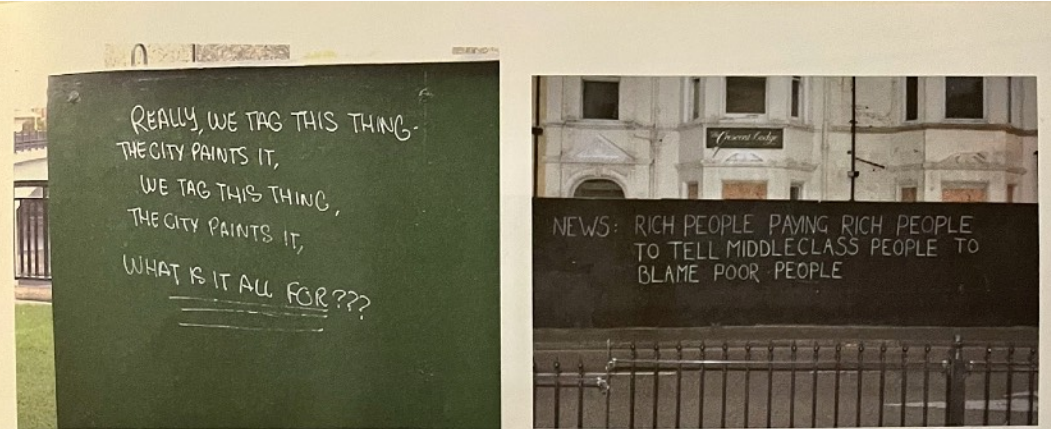 REALLY, WE TAG THIS THING-
THE CITY PAINTS IT,
WE TAG THIS THING,
THE CITY PAINTS IT,
WHAT IS IT ALL FOR???
Crescent Lodge
NEWS: RICH PEOPLE PAYING RICH PEOPLE
TO TELL MIDDLECLASS PEOPLE TO
BLAME POOR PEOPLE